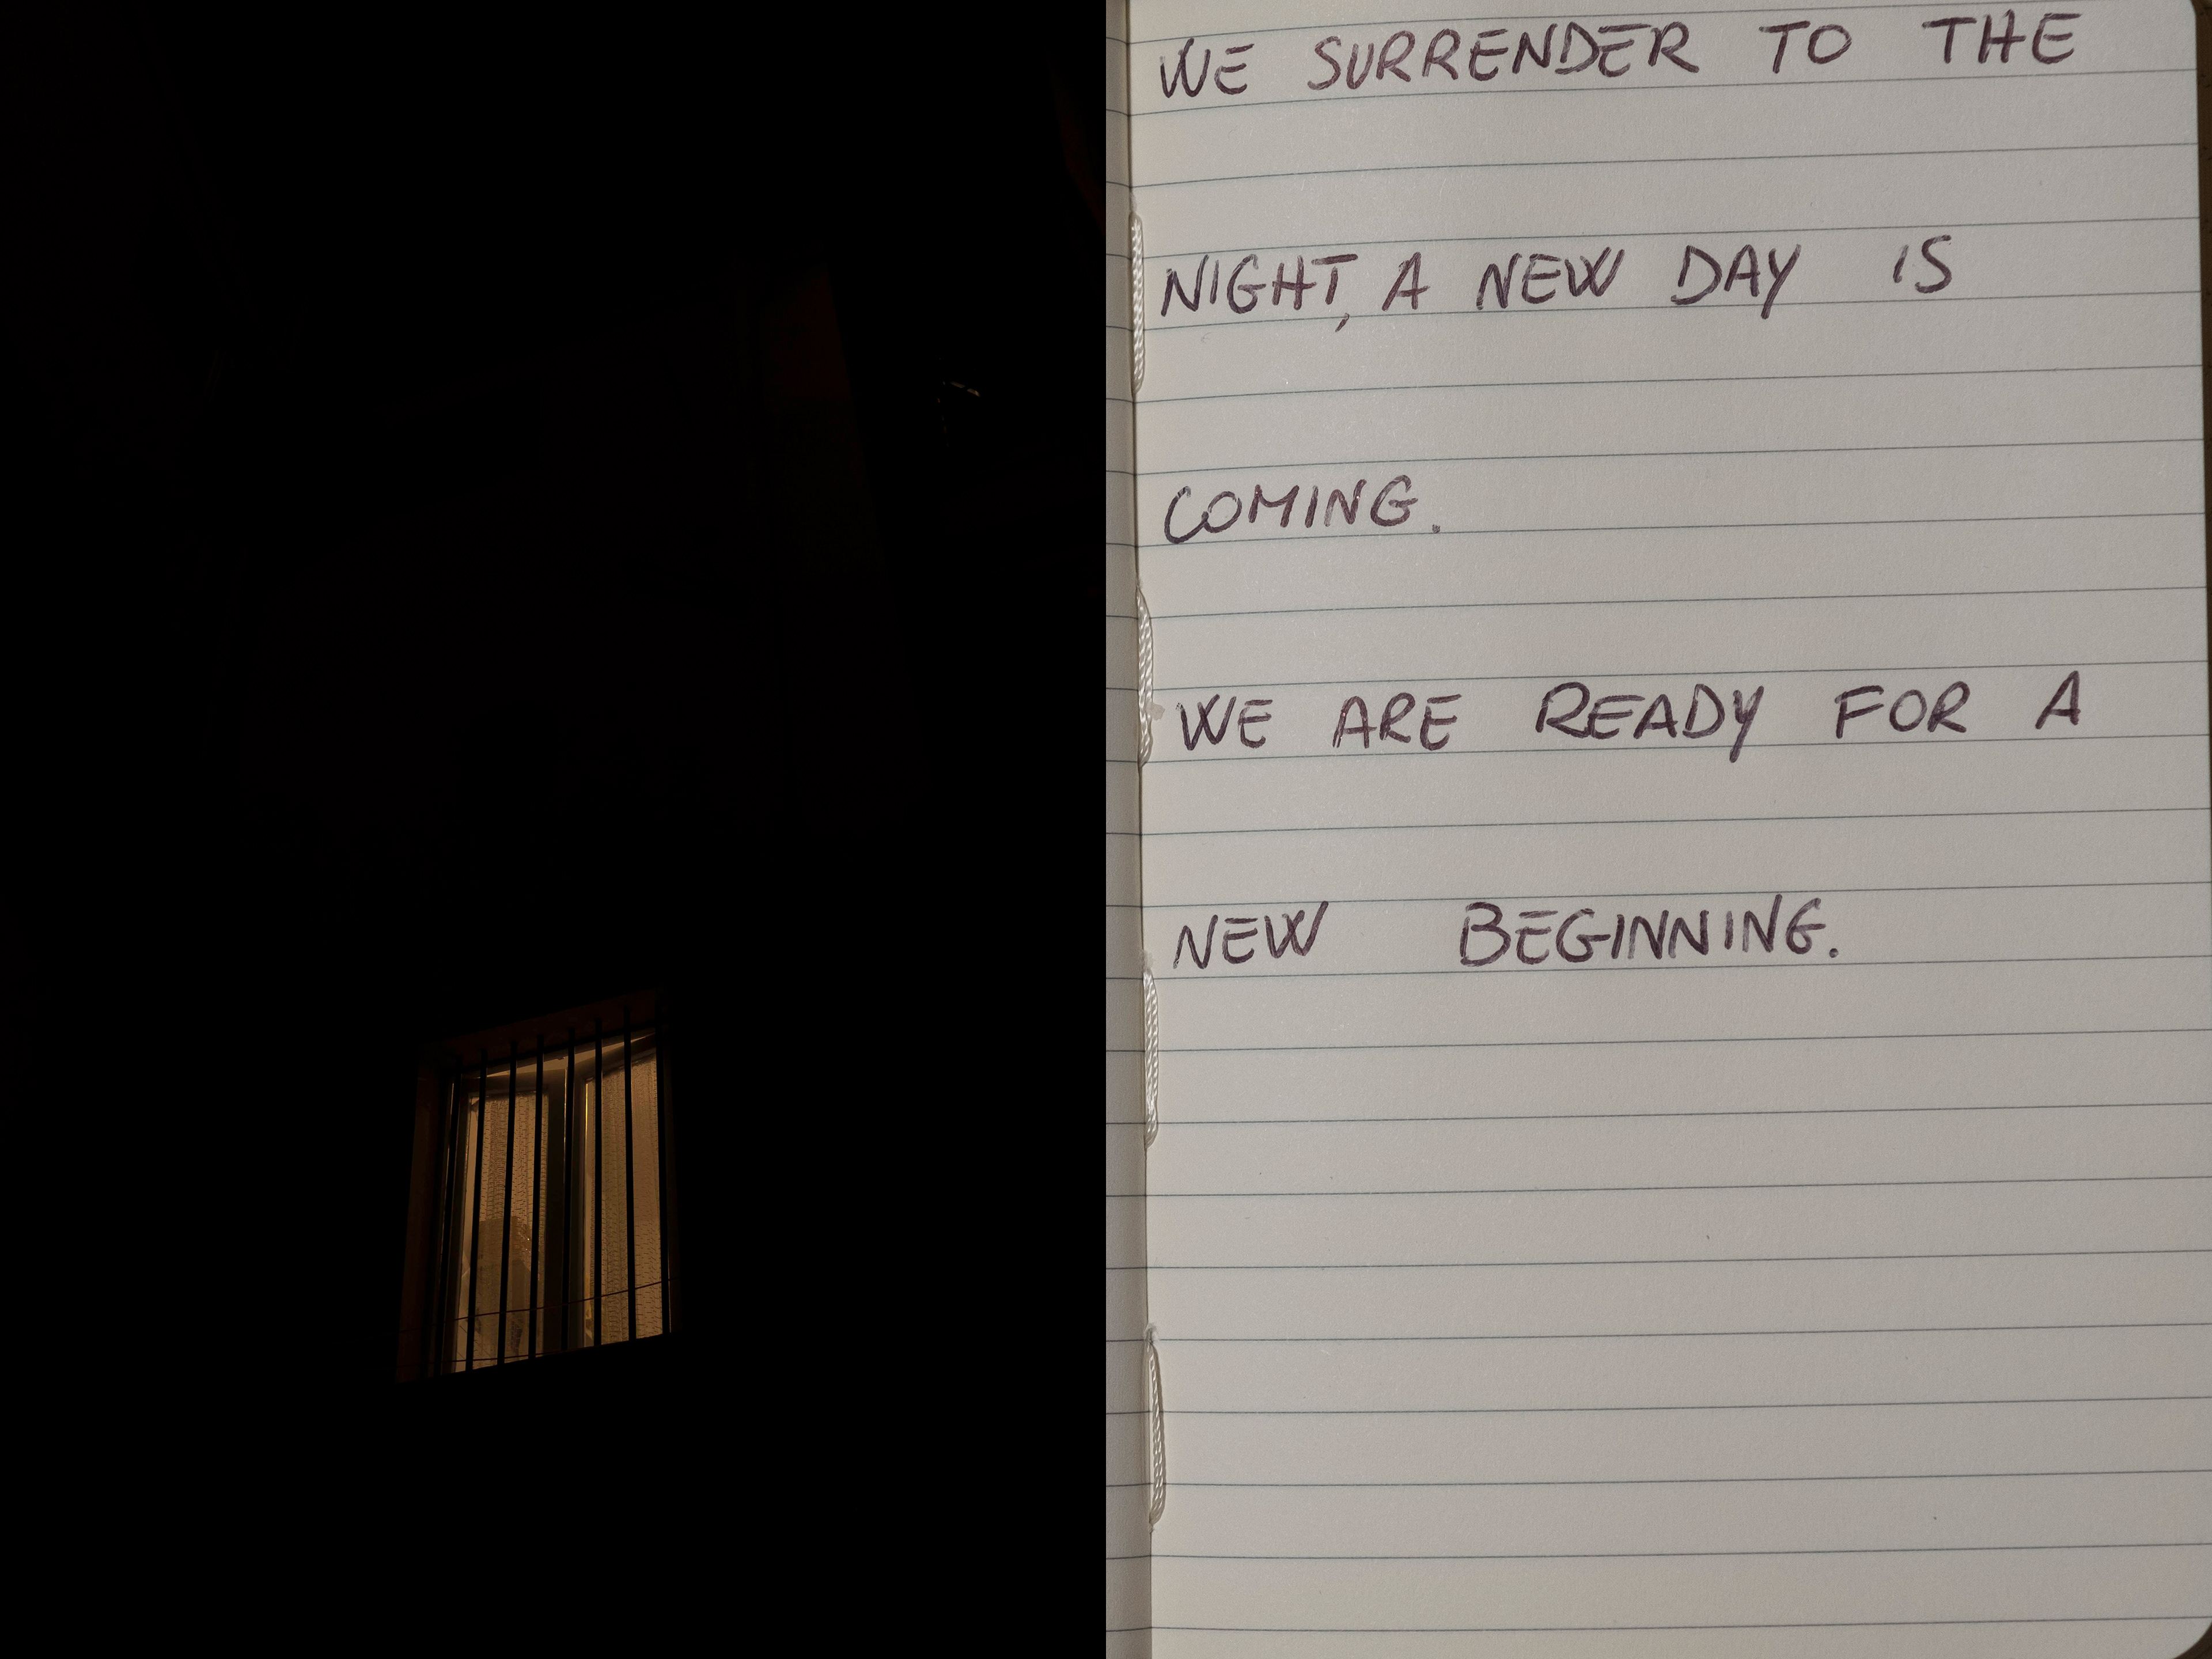 WE SURRENDER TO THE
NIGHT, A NEW DAY IS
COMING.
WE ARE READY FOR A
NEW BEGINNING.